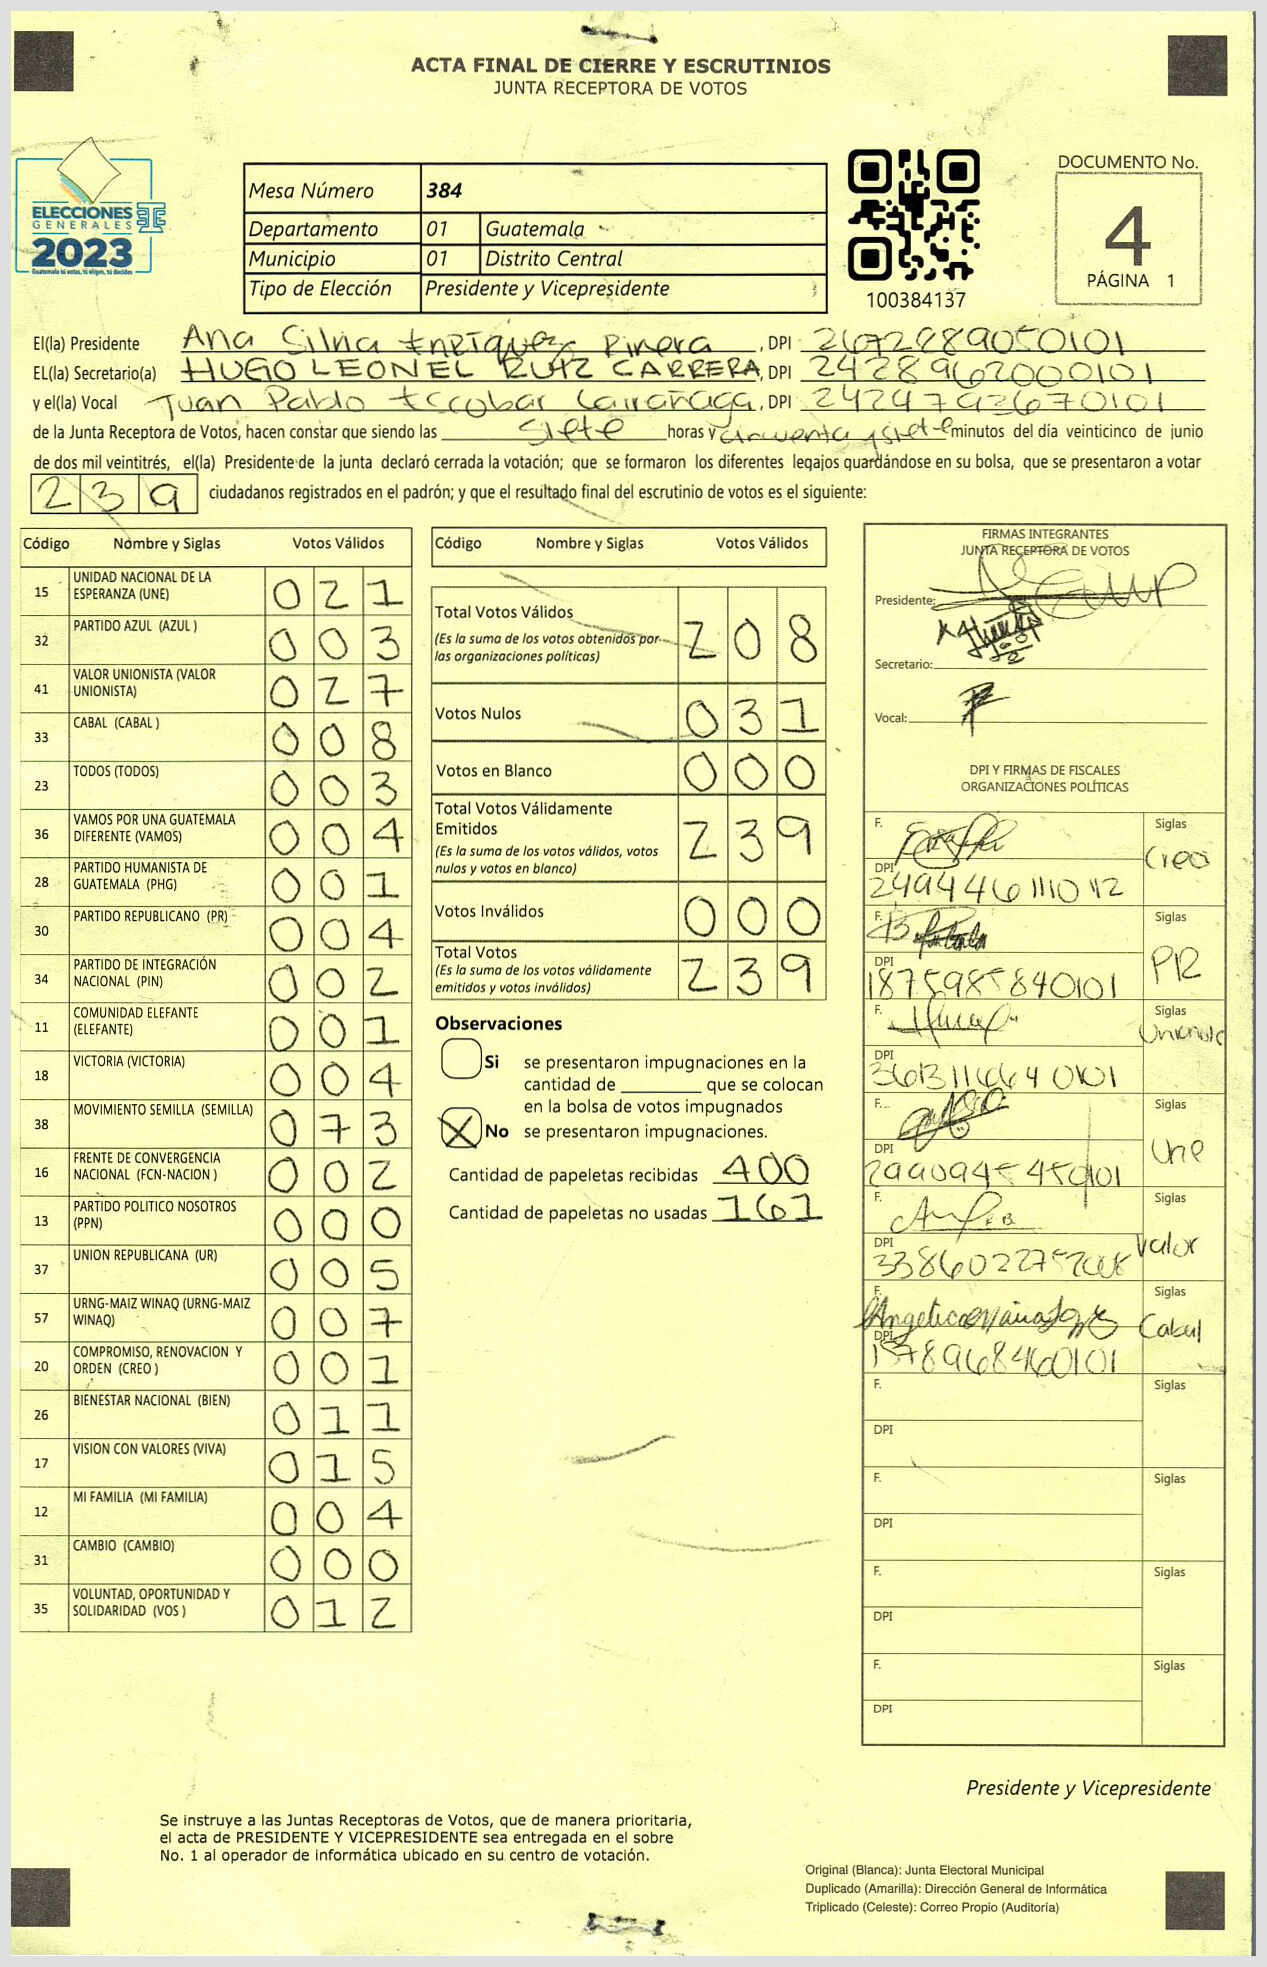 ACTA FINAL DE CIERRE Y ESCRUTINIOS
JUNTA RECEPTORA DE VOTOS
ELECCIONES
GENERALES
2023
Guatemala tú votas, tú eliges, tú decides
Mesa Número 384
Departamento 01 Guatemala
Municipio 01 Distrito Central
Tipo de Elección Presidente y Vicepresidente
100384137
DOCUMENTO No.
4
PÁGINA 1
El(la) Presidente Ana Silvia Enríquez Rivera, DPI 2672889050101
EL(la) Secretario(a) HUGO LEONEL RUIZ CARRERA, DPI 2428962000101
y el(la) Vocal Juan Pablo Escobar, DPI 2424793670101
de la Junta Receptora de Votos, hacen constar que siendo las siete horas y cincuenta y siete minutos del día veinticinco de junio
de dos mil veintitrés, el(la) Presidente de la junta declaró cerrada la votación; que se formaron los diferentes legajos guardándose en su bolsa, que se presentaron a votar
239 ciudadanos registrados en el padrón; y que el resultado final del escrutinio de votos es el siguiente:
Código Nombre y Siglas Votos Válidos
15 UNIDAD NACIONAL DE LA ESPERANZA (UNE) 021
32 PARTIDO AZUL (AZUL ) 003
41 VALOR UNIONISTA (VALOR UNIONISTA) 027
33 CABAL (CABAL ) 008
23 TODOS (TODOS) 003
36 VAMOS POR UNA GUATEMALA DIFERENTE (VAMOS) 004
28 PARTIDO HUMANISTA DE GUATEMALA (PHG) 001
30 PARTIDO REPUBLICANO (PR) 004
34 PARTIDO DE INTEGRACIÓN NACIONAL (PIN) 002
11 COMUNIDAD ELEFANTE (ELEFANTE) 001
18 VICTORIA (VICTORIA) 004
38 MOVIMIENTO SEMILLA (SEMILLA) 073
16 FRENTE DE CONVERGENCIA NACIONAL (FCN-NACION ) 002
13 PARTIDO POLITICO NOSOTROS (PPN) 000
37 UNION REPUBLICANA (UR) 005
57 URNG-MAIZ WINAQ (URNG-MAIZ WINAQ) 007
20 COMPROMISO, RENOVACION Y ORDEN (CREO ) 001
26 BIENESTAR NACIONAL (BIEN) 011
17 VISION CON VALORES (VIVA) 015
12 MI FAMILIA (MI FAMILIA) 004
31 CAMBIO (CAMBIO) 000
35 VOLUNTAD, OPORTUNIDAD Y SOLIDARIDAD (VOS ) 012
Código Nombre y Siglas Votos Válidos
Total Votos Válidos 208
(Es la suma de los votos obtenidos por
las organizaciones políticas)
Votos Nulos 031
Votos en Blanco 000
Total Votos Válidamente
Emitidos 239
(Es la suma de los votos válidos, votos
nulos y votos en blanco)
Votos Inválidos 000
Total Votos 239
(Es la suma de los votos válidamente
emitidos y votos inválidos)
Observaciones
Si se presentaron impugnaciones en la
cantidad de ________ que se colocan
en la bolsa de votos impugnados
X No se presentaron impugnaciones.
Cantidad de papeletas recibidas 400
Cantidad de papeletas no usadas 161
FIRMAS INTEGRANTES
JUNTA RECEPTORA DE VOTOS
Presidente:
Secretario:
Vocal:
DPI Y FIRMAS DE FISCALES
ORGANIZACIONES POLÍTICAS
F. Siglas
Creo
DPI
F. Siglas
PR
DPI
1875985840101
F. Siglas
Unionista
DPI
3613116640101
F. Siglas
Une
DPI
2990945450101
F. Siglas
Valor
DPI
F. Siglas
Cabal
DPI
1578968460101
F. Siglas
DPI
F. Siglas
DPI
F. Siglas
DPI
F. Siglas
DPI
Presidente y Vicepresidente
Se instruye a las Juntas Receptoras de Votos, que de manera prioritaria,
el acta de PRESIDENTE Y VICEPRESIDENTE sea entregada en el sobre
No. 1 al operador de informática ubicado en su centro de votación.
Original (Blanca): Junta Electoral Municipal
Duplicado (Amarilla): Dirección General de Informática
Triplicado (Celeste): Correo Propio (Auditoría)